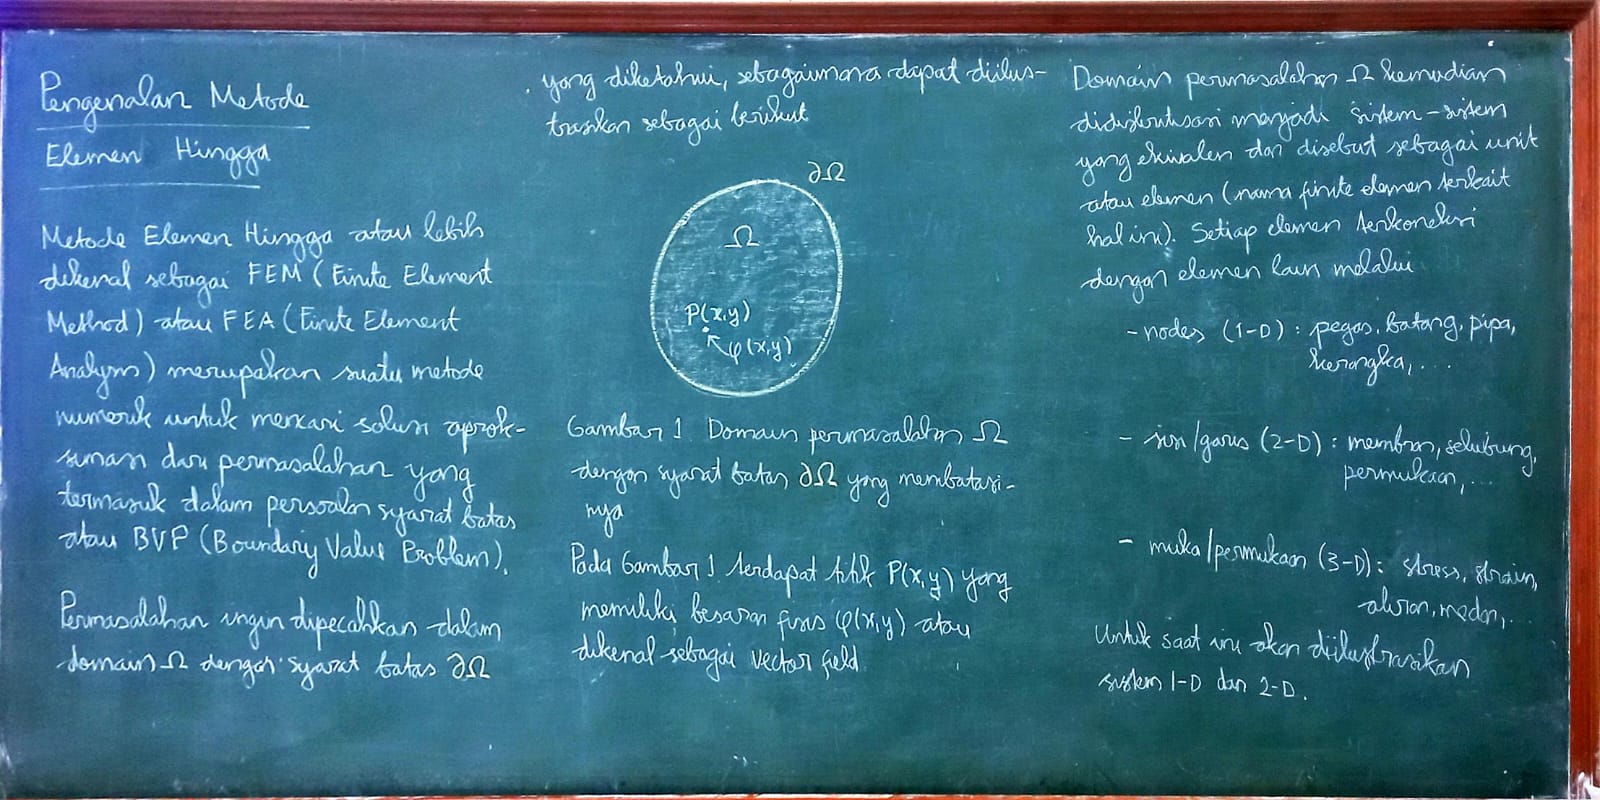 Pengenalan Metode
Elemen Hingga
Metode Elemen Hingga atau lebih
dikenal sebagai FEM (Finite Element
Method) atau FEA (Finite Element
Analysis) merupakan suatu metode
numerik untuk mencari solusi aprok-
simasi dari permasalahan yang
termasuk dalam persoalan syarat batas
atau BVP (Boundary Value Problem).
Permasalahan ingin dipecahkan dalam
domain Ω dengan syarat batas ∂Ω
yang diketahui, sebagaimana dapat diilus-
trasikan sebagai berikut
∂Ω
Ω
P(x,y)
φ(x,y)
Gambar 1. Domain permasalahan Ω
dengan syarat batas ∂Ω yang membatasi-
nya
Pada Gambar 1 terdapat titik P(x,y) yang
memiliki besaran fisis φ(x,y) atau
dikenal sebagai vector field.
Domain permasalahan Ω kemudian
didiskritisasi menjadi sistem-sistem
yang ekivalen dan disebut sebagai unit
atau elemen (nama finite elemen terkait
hal ini). Setiap elemen terkoneksi
dengan elemen lain melalui
- nodes (1-D) : pegas, batang, pipa,
kerangka, ...
- sisi/garis (2-D) : membran, selubung,
permukaan, ...
- muka/permukaan (3-D) : stress, strain,
aliran, medan, ...
Untuk saat ini akan diilustrasikan
sistem 1-D dan 2-D.